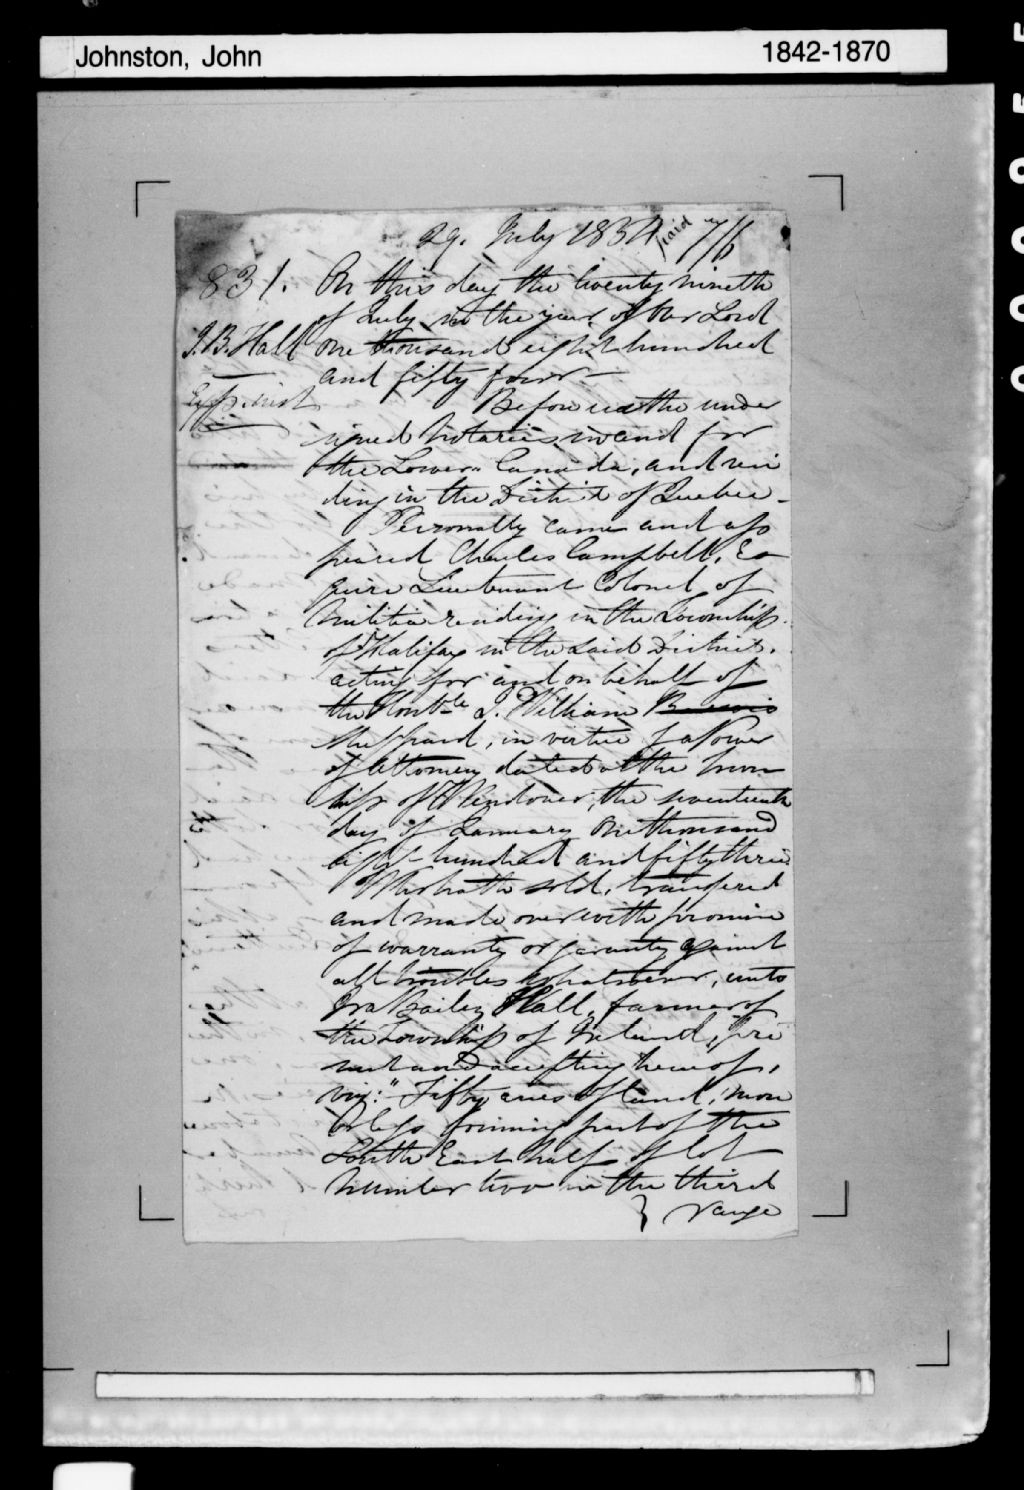 Johnston, John 1842-1870
29. July 1854 paid 7/6
831. On this day the twenty nineth
of July in the year of Our Lord
I.B. Hall one thousand eight hundred
and fifty four
Before us the under
signed Notaries in and for
the Lower Canada, and resi
ding in the District of Quebec -
Personally came and ap
peared Charles Campbell, Es
quire Lieutenant Colonel of
Militia residing in the Township
of Halifax in the said District.
acting for and on behalf of
the Honble J. William
Sheppard, in virtue of a Power
of Attorney dated at the Town
ship of Wendover, the seventeenth
day of January One thousand
eight hundred and fifty three
Who hath sold, transfered
and made over with promise
of warranty or garanty against
all troubles whatsoever, unto
Ira Bailey Hall, farmer of
the Township of Ireland, pre
sent and accepting hereof,
viz: "Fifty acres of land, more
or less forming part of the
South East half of lot
Number two in the third
range